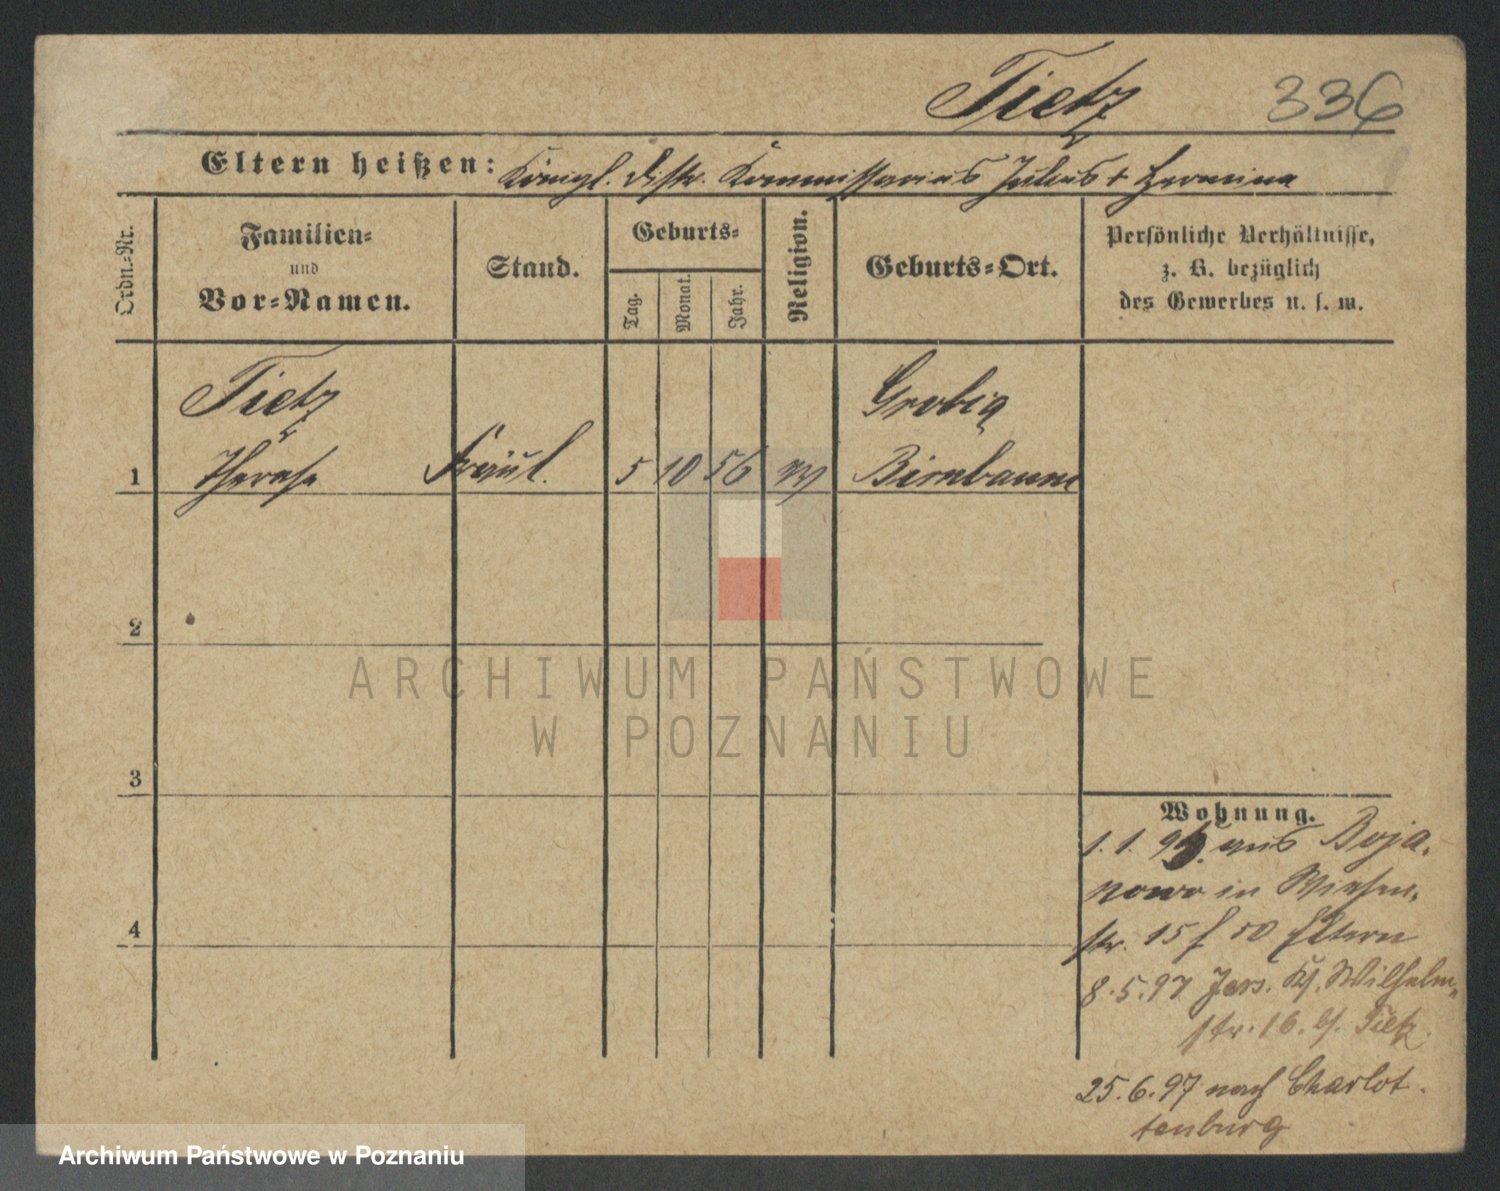 Tietz 336
Eltern heißen: Königl. Distr. Kommissarius Julius + Hermine
Ordn.-Nr.
Familien-
und
Vor-Namen.
Stand.
Geburts-
Tag.
Monat.
Jahr.
Religion.
Geburts-Ort.
Persönliche Verhältnisse,
z. B. bezüglich
des Gewerbes u. s. w.
Tietz Grobia
1 Therese Fräul. 5 10 56 Birnbaum
2
3
4
Wohnung.
1. 1. 95. aus Boja-
nowo in Wiesen-
str. 15 Eltern
8.5.97 Jers. Wilhelm-
str. 16. b/. Tietz.
25.6.97 nach Charlot-
tenburg
ARCHIWUM PAŃSTWOWE
W POZNANIU
Archiwum Państwowe w Poznaniu